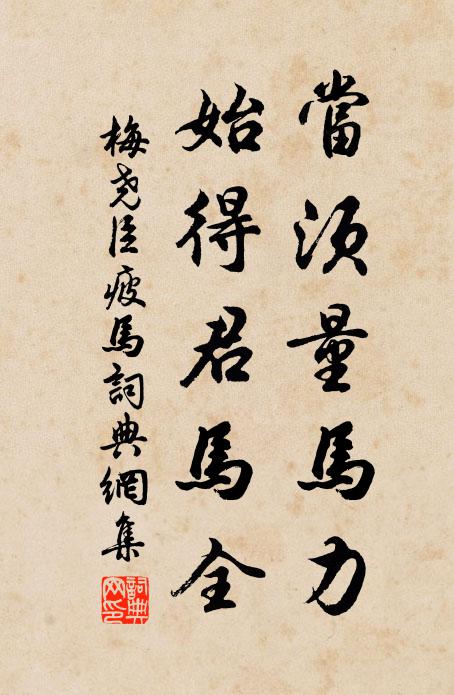 當須量馬力
始得君馬全
梅堯臣疲馬詞典網集
詞典網印